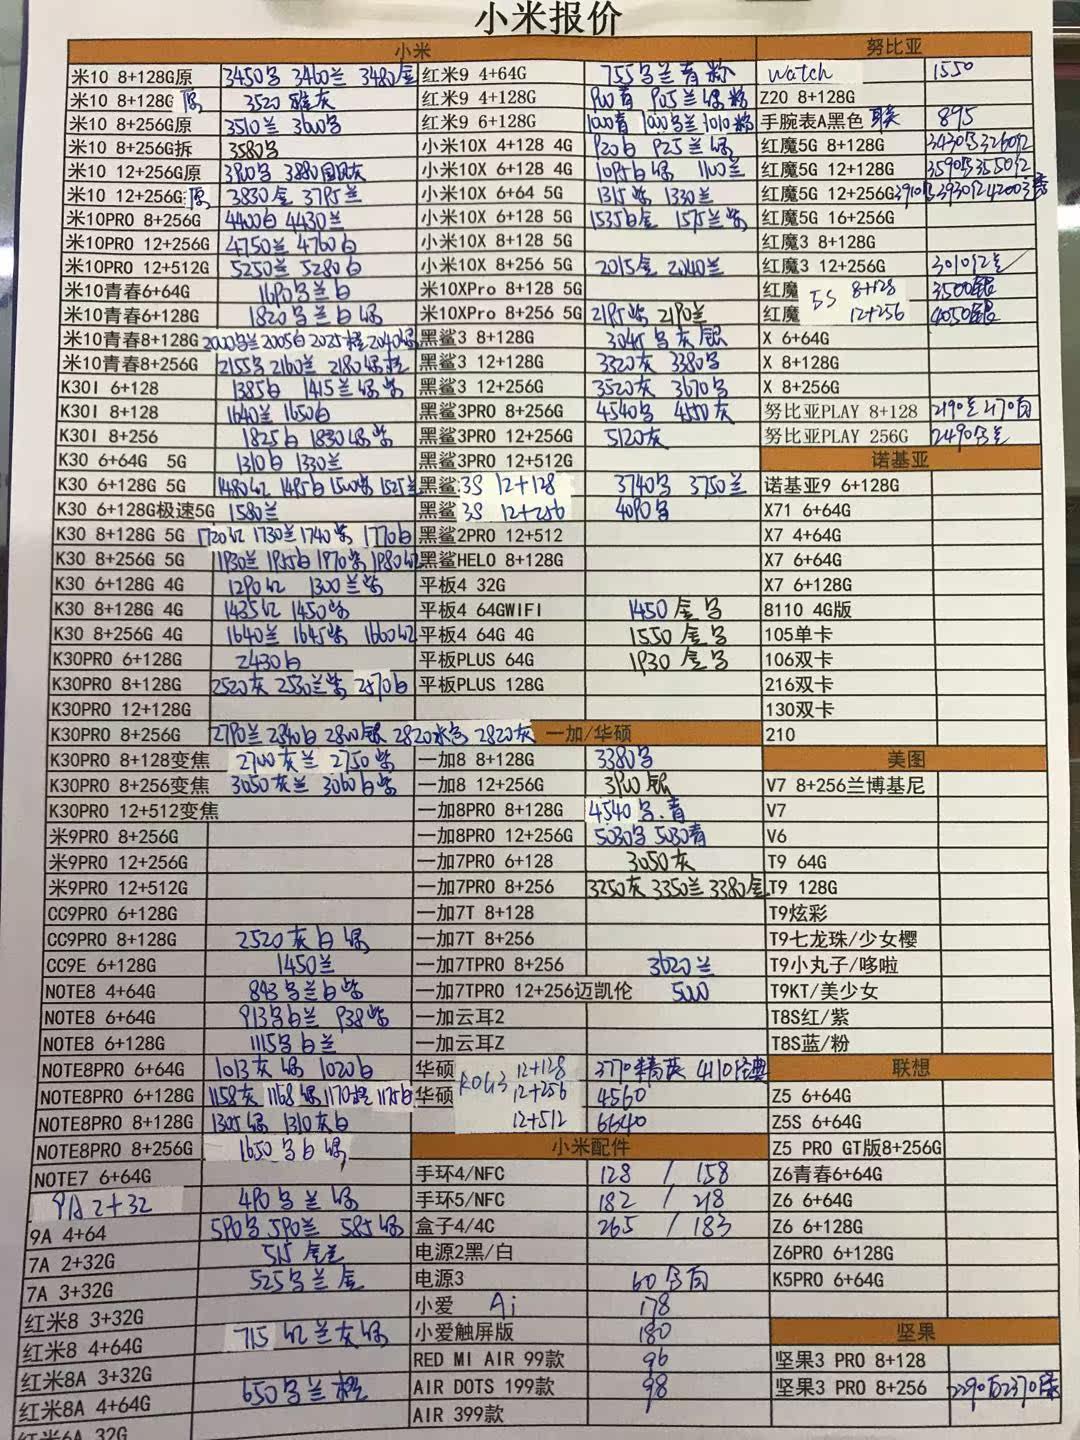 小米报价
小米
米10 8+128G原 3450乌 3460兰 3480金
米10 8+128G 原 3520 雅灰
米10 8+256G原 3510兰 3600乌
米10 8+256G拆 3580乌
米10 12+256G原 3910乌 3880国风灰
米10 12+256G 原 3830金 3795兰
米10PRO 8+256G 4400白 4430兰
米10PRO 12+256G 4750兰 4760白
米10PRO 12+512G 5250兰 5280白
米10青春6+64G 1690乌兰白
米10青春6+128G 1820乌兰白绿
米10青春8+128G 2000乌兰 2005白 2025橙 2040绿
米10青春8+256G 2155乌 2160兰 2180绿橙
K30I 6+128 1385白 1415兰绿紫
K30I 8+128 1640兰 1650白
K30I 8+256 1825白 1830绿紫
K30 6+64G 5G 1310白 1330兰
K30 6+128G 5G 1480红 1495白 1500紫 1525兰
K30 6+128G极速5G 1580兰
K30 8+128G 5G 1720红 1730兰 1740紫 1770白
K30 8+256G 5G 1930兰 1955白 1970紫 1980红
K30 6+128G 4G 1290红 1300兰紫
K30 8+128G 4G 1435红 1450紫
K30 8+256G 4G 1640兰 1645紫 1660红
K30PRO 6+128G 2430白
K30PRO 8+128G 2520灰 2530兰紫 2570白
K30PRO 12+128G
K30PRO 8+256G 2790兰 2840白 2800银 2820冰乌 2820灰
K30PRO 8+128变焦 2700灰兰 2750紫
K30PRO 8+256变焦 3050灰兰 3060白紫
K30PRO 12+512变焦
米9PRO 8+256G
米9PRO 12+256G
米9PRO 12+512G
CC9PRO 6+128G
CC9PRO 8+128G 2520灰白绿
CC9E 6+128G 1450兰
NOTE8 4+64G 843乌兰白紫
NOTE8 6+64G 913乌白兰 938紫
NOTE8 6+128G 1115乌白兰
NOTE8PRO 6+64G 1013灰绿 1020白
NOTE8PRO 6+128G 1158灰 1168绿 1170橙 1175白
NOTE8PRO 8+128G 1305绿 1310灰白
NOTE8PRO 8+256G 1650乌白绿
NOTE7 6+64G
9A 2+32 490乌兰绿
9A 4+64 590乌 590兰 585绿
7A 2+32G 515金兰
7A 3+32G 525乌兰金
红米8 3+32G
红米8 4+64G 715红兰灰绿
红米8A 3+32G
红米8A 4+64G 650乌兰橙
红米6A 32G
红米9 4+64G 755乌兰青粉
红米9 4+128G 900青 905兰绿粉
红米9 6+128G 1000青 1000乌兰 1010粉
小米10X 4+128 4G 920白 925兰绿
小米10X 6+128 4G 1095白绿 1100兰
小米10X 6+64 5G 1315紫 1330兰
小米10X 6+128 5G 1535白金 1575兰紫
小米10X 8+128 5G
小米10X 8+256 5G 2015金 2040兰
米10XPro 8+128 5G
米10XPro 8+256 5G 2195紫 2190兰
黑鲨3 8+128G 3045乌灰银
黑鲨3 12+128G 3320灰 3380乌
黑鲨3 12+256G 3520灰 3670乌
黑鲨3PRO 8+256G 4540乌 4550灰
黑鲨3PRO 12+256G 5120灰
黑鲨3PRO 12+512G
黑鲨 3S 12+128 3740乌 3750兰
黑鲨 3S 12+256 4090乌
黑鲨2PRO 12+512
黑鲨HELO 8+128G
平板4 32G
平板4 64GWIFI 1450金乌
平板4 64G 4G 1550金乌
平板PLUS 64G 1930金乌
平板PLUS 128G
一加/华硕
一加8 8+128G 3380乌
一加8 12+256G 3900银
一加8PRO 8+128G 4540乌.青
一加8PRO 12+256G 5030乌 5030青
一加7PRO 6+128 3050灰
一加7PRO 8+256 3250灰 3350兰 3380金
一加7T 8+128
一加7T 8+256
一加7TPRO 8+256 3620兰
一加7TPRO 12+256迈凯伦 5000
一加云耳2
一加云耳Z
华硕 ROG3 12+128 3770精英 4110经典
华硕 12+256 4560
12+512 6640
小米配件
手环4/NFC 128 / 158
手环5/NFC 182 / 218
盒子4/4C 265 / 183
电源2黑/白
电源3 60乌白
小爱 Ai 178
小爱触屏版 180
RED MI AIR 99款 96
AIR DOTS 199款 98
AIR 399款
努比亚
Watch 1550
Z20 8+128G
手腕表A黑色 联 895
红魔5G 8+128G 3430乌 3260红
红魔5G 12+128G 3590乌 3550红
红魔5G 12+256G 3910乌 3930红 4200
红魔5G 16+256G
红魔3 8+128G
红魔3 12+256G 3010红兰
红魔 5S 8+128 3500银
红魔 12+256 4050银
X 6+64G
X 8+128G
X 8+256G
努比亚PLAY 8+128 2190兰 2170白
努比亚PLAY 256G 2490白兰
诺基亚
诺基亚9 6+128G
X71 6+64G
X7 4+64G
X7 6+64G
X7 6+128G
8110 4G版
105单卡
106双卡
216双卡
130双卡
210
美图
V7 8+256兰博基尼
V7
V6
T9 64G
T9 128G
T9炫彩
T9七龙珠/少女樱
T9小丸子/哆啦
T9KT/美少女
T8S红/紫
T8S蓝/粉
联想
Z5 6+64G
Z5S 6+64G
Z5 PRO GT版8+256G
Z6青春6+64G
Z6 6+64G
Z6 6+128G
Z6PRO 6+128G
K5PRO 6+64G
坚果
坚果3 PRO 8+128
坚果3 PRO 8+256 2290白 2370绿